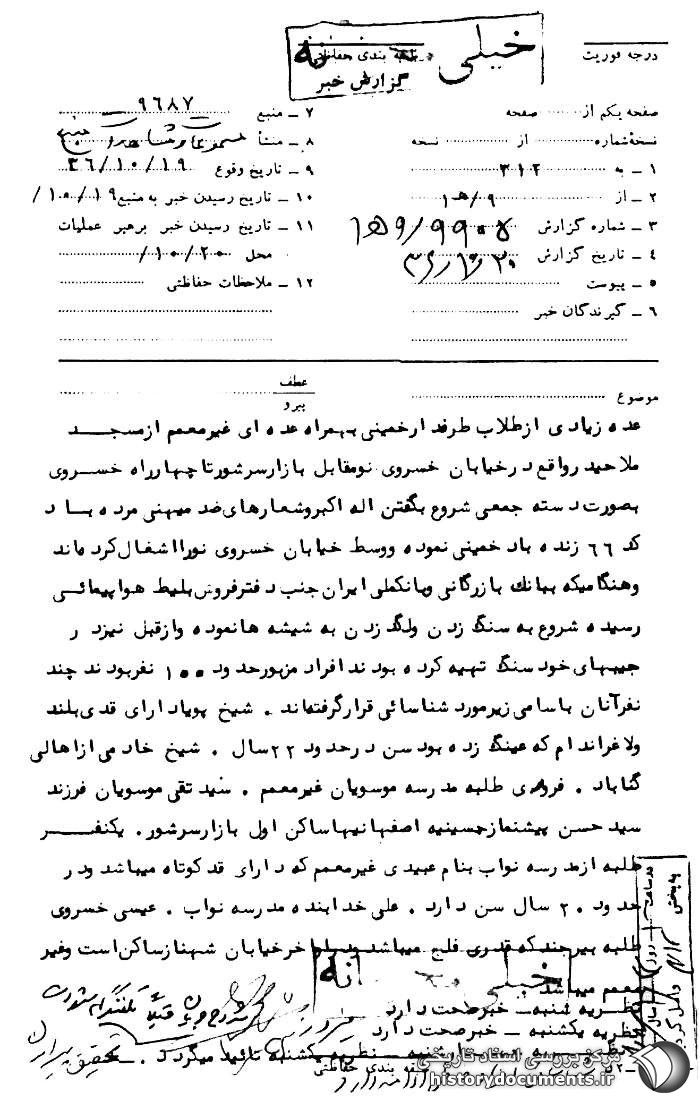 خیلی
طبقه بندی حفاظتی
گزارش خبر
درجه فوریت
صفحه یکم از ........ صفحه
نسخه شماره ........ از ........ نسخه
۱ ـ به ۳۱۲
۲ ـ از ۹/ه‍ ۱
۳ ـ شماره گزارش
۴ ـ تاریخ گزارش
۵ ـ پیوست
۶ ـ گیرندگان خبر
۷ ـ منبع ۹۶۸۷
۸ ـ منشأ
۹ ـ تاریخ وقوع ۳۶/۱۰/۱۹
۱۰ ـ تاریخ رسیدن خبر به منبع ۱۰/۱۹/
۱۱ ـ تاریخ رسیدن خبر برهبر عملیات
محل ۱۰/۲۰/
۱۲ ـ ملاحظات حفاظتی
موضوع
عطف
پیرو
عده زیادی ازطلاب طرفدارخمینی بهمراه عده ای غیرمعمم ازمسجد
ملاحیدرواقع درخیابان خسروی نومقابل بازارسرشورتاچهارراه خسروی
بصورت دسته جمعی شروع بگفتن اله اکبروشعارهای ضد میهنی مرده باد
کد ۶۶ زنده باد خمینی نموده ووسط خیابان خسروی نورااشغال کرده‌اند
وهنگامیکه ببانک بازرگانی وبانکملی ایران جنب دفترفروش بلیط هواپیمائی
رسیده شروع به سنگ زدن ولگد زدن به شیشه هانموده وازقبل نیزدر
جیبهای خود سنگ تهیه کرده بودند افراد مزبورحدود ۱۰۰ نفربودند چند
نفرآنان باسامی زیرمورد شناسائی قرارگرفته‌اند . شیخ پویادارای قدی بلند
ولاغراندام که عینک زده بود سن درحدود ۲۲سال . شیخ خادمی ازاهالی
گناباد . فرهدی طلبه مدرسه موسویان غیرمعمم . سید تقی موسویان فرزند
سید حسن پیشنمازحسینیه اصفهانیهاساکن اول بازارسرشور. یکنفر
طلبه ازمدرسه نواب بنام عبیدی غیرمعمم که دارای قد کوتاه میباشد ودر
حدود ۲۰ سال سن دارد . علی خدابنده مدرسه نواب . عیسی خسروی
طلبه بیرجند که قدری فلج میباشد ودراواخرخیابان شهنازساکن است وغیر
معمم میباشد
خیلی
نظریه شنبه ـ خبرصحت دارد
نظریه یکشنبه ـ خبرصحت دارد
نظریه یکشنبه تائید میگردد .
طبقه بندی حفاظتی
مرکز بررسی اسناد تاریخی
historydocuments.ir